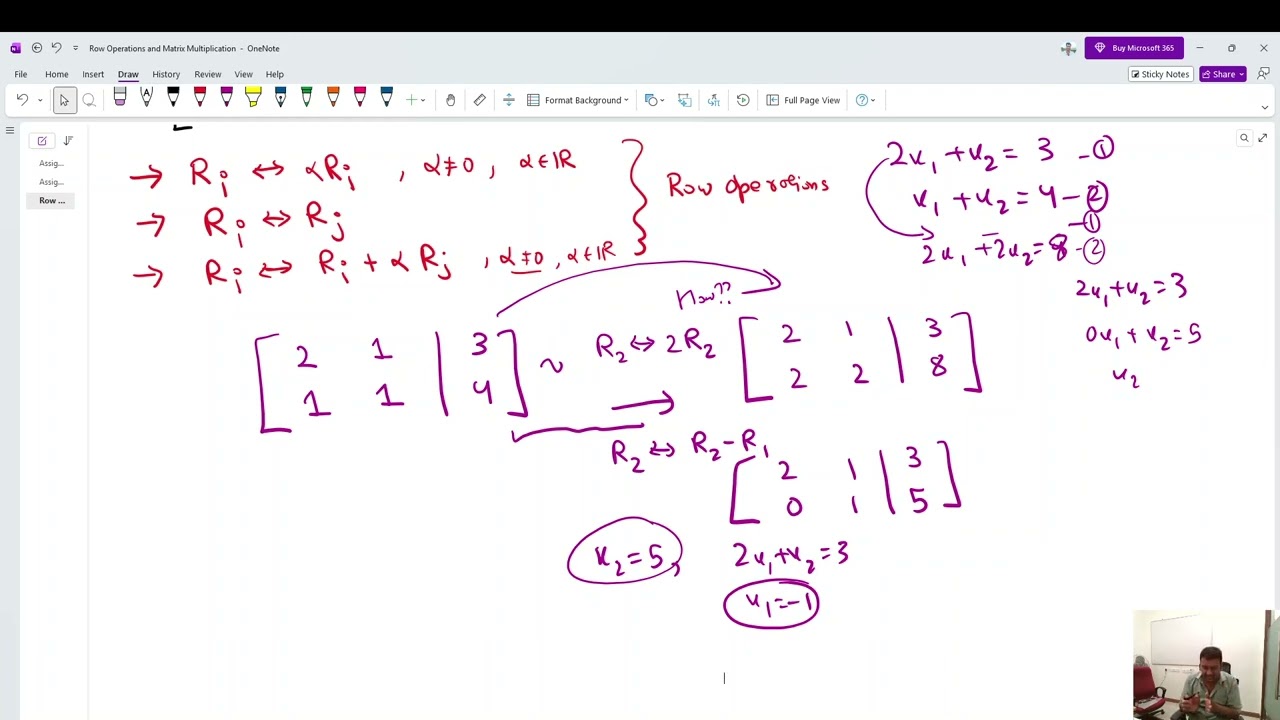 Row Operations and Matrix Multiplication - OneNote
Buy Microsoft 365
File Home Insert Draw History Review View Help
Sticky Notes Share
Format Background Full Page View
Assig...
Assig...
Row ...
→ Ri ↔ αRi , α≠0, α∈IR
→ Ri ↔ Rj
→ Ri ↔ Ri + αRj , α≠0, α∈IR
Row operations
2x₁ + x₂ = 3 -①
x₁ + x₂ = 4 -②
-①
2x₁ + 2x₂ = 8 -②
2x₁ + x₂ = 3
0x₁ + x₂ = 5
x₂
How??
[ 2 1 | 3 ] ~ R₂ ↔ 2R₂ [ 2 1 | 3 ]
[ 1 1 | 4 ] → [ 2 2 | 8 ]
R₂ ↔ R₂ - R₁
[ 2 1 | 3 ]
[ 0 1 | 5 ]
x₂ = 5, 2x₁ + x₂ = 3
x₁ = -1